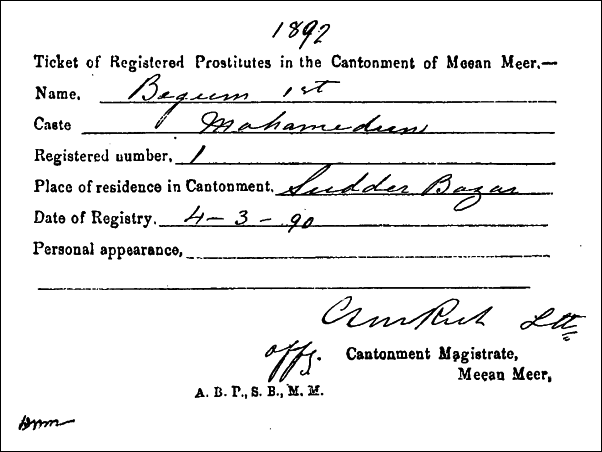 1892
Ticket of Registered Prostitutes in the Cantonment of Meean Meer.—
Name. Begum 1st
Caste Mohamedun
Registered number. 1
Place of residence in Cantonment. Sudder Bazar
Date of Registry. 4-3-90
Personal appearance.
Ltt
offg. Cantonment Magistrate,
Meean Meer,
A. B. P., S. B., M. M.